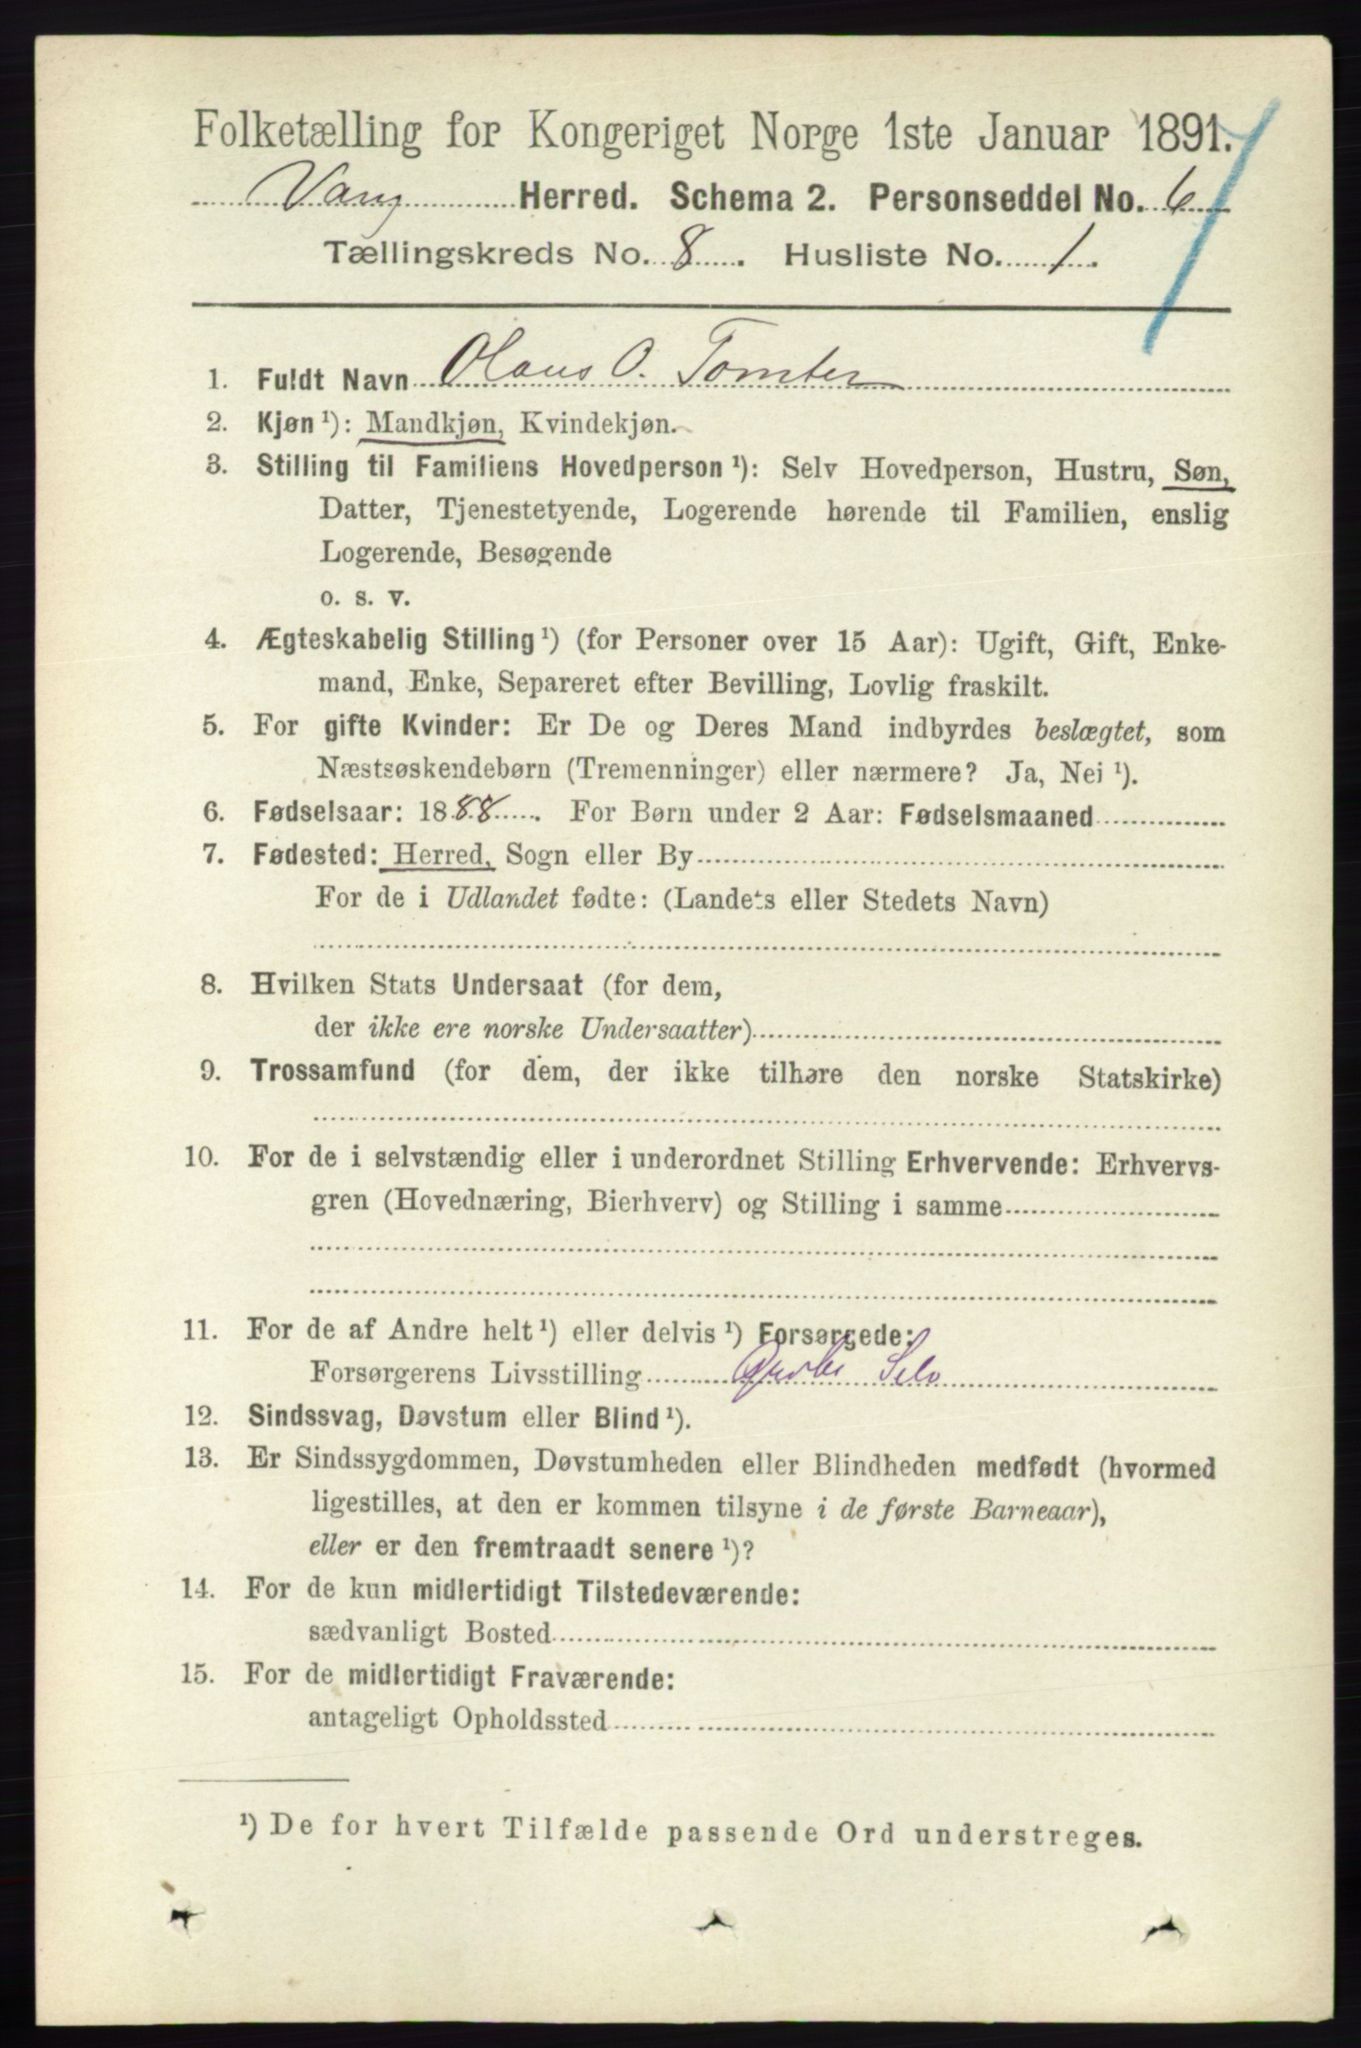 Folketælling for Kongeriget Norge 1ste Januar 1891.
Vang Herred. Schema 2. Personseddel No. 6
Tællingskreds No. 8. Husliste No. 1.
1. Fuldt Navn Olaus O. Tomter
2. Kjøn ¹): Mandkjøn, Kvindekjøn.
3. Stilling til Familiens Hovedperson ¹): Selv Hovedperson, Hustru, Søn,
Datter, Tjenestetyende, Logerende hørende til Familien, enslig
Logerende, Besøgende
o. s. v.
4. Ægteskabelig Stilling ¹) (for Personer over 15 Aar): Ugift, Gift, Enke-
mand, Enke, Separeret efter Bevilling, Lovlig fraskilt.
5. For gifte Kvinder: Er De og Deres Mand indbyrdes beslægtet, som
Næstsøskendebørn (Tremenninger) eller nærmere? Ja, Nei ¹).
6. Fødselsaar: 1888. For Børn under 2 Aar: Fødselsmaaned
7. Fødested: Herred, Sogn eller By
For de i Udlandet fødte: (Landets eller Stedets Navn)
8. Hvilken Stats Undersaat (for dem,
der ikke ere norske Undersaatter)
9. Trossamfund (for dem, der ikke tilhøre den norske Statskirke)
10. For de i selvstændig eller i underordnet Stilling Erhvervende: Erhvervs-
gren (Hovednæring, Bierhverv) og Stilling i samme
11. For de af Andre helt ¹) eller delvis ¹) Forsørgede:
Forsørgerens Livsstilling Selv
12. Sindssvag, Døvstum eller Blind ¹).
13. Er Sindssygdommen, Døvstumheden eller Blindheden medfødt (hvormed
ligestilles, at den er kommen tilsyne i de første Barneaar),
eller er den fremtraadt senere ¹)?
14. For de kun midlertidigt Tilstedeværende:
sædvanligt Bosted
15. For de midlertidigt Fraværende:
antageligt Opholdssted
¹) De for hvert Tilfælde passende Ord understreges.